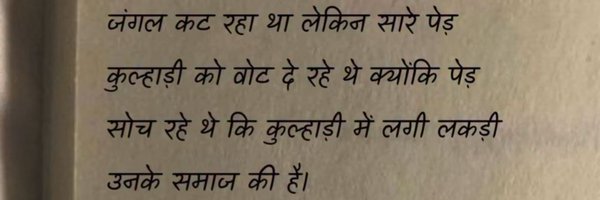 जंगल कट रहा था लेकिन सारे पेड़
कुल्हाड़ी को वोट दे रहे थे क्योंकि पेड़
सोच रहे थे कि कुल्हाड़ी में लगी लकड़ी
उनके समाज की है।